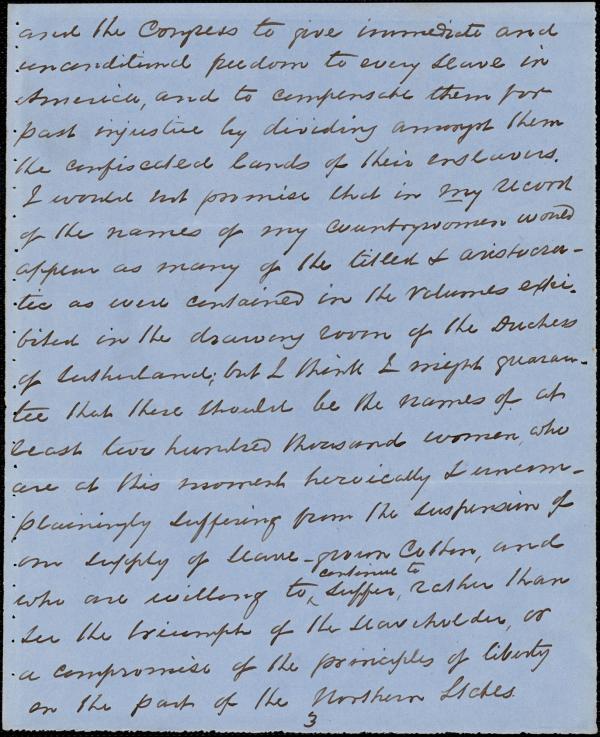 and the Congress to give immediate and
unconditional freedom to every slave in
America, and to compensate them for
past injustice by dividing amongst them
the confiscated lands of their enslavers.
I would not promise that in my record
of the names of my countrywomen would
appear as many of the titled & aristocra-
tic as were contained in the volumes exhi-
bited in the drawing room of the Duchess
of Sutherland; but I think I might guaran-
tee that there should be the names of at
least two hundred thousand women, who
are at this moment heroically & uncom-
plainingly suffering from the suspension of
our supply of slave-grown Cotton, and
continue to
who are willing to suffer, rather than
see the triumph of the slaveholder, or
a compromise of the principles of liberty
on the part of the Northern States
3